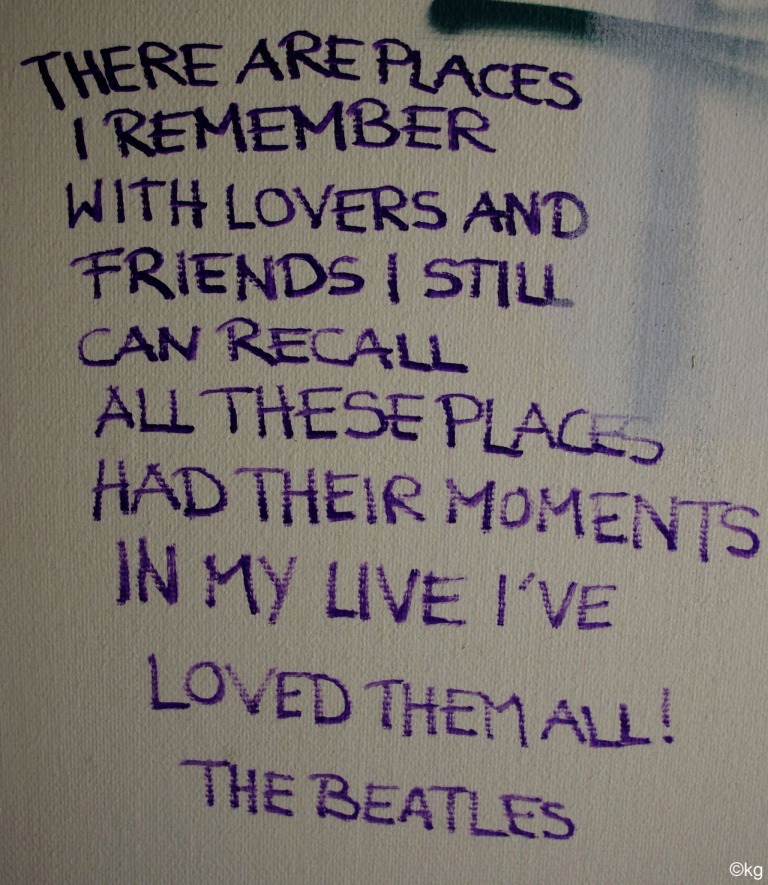 THERE ARE PLACES
I REMEMBER
WITH LOVERS AND
FRIENDS I STILL
CAN RECALL
ALL THESE PLACES
HAD THEIR MOMENTS
IN MY LIVE I'VE
LOVED THEM ALL!
THE BEATLES
©kg